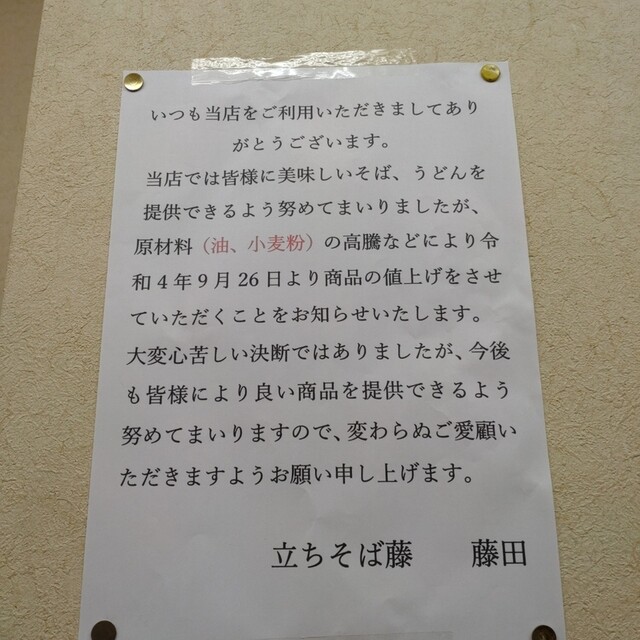 いつも当店をご利用いただきましてあり
がとうございます。
当店では皆様に美味しいそば、うどんを
提供できるよう努めてまいりましたが、
原材料（油、小麦粉）の高騰などにより令
和４年９月 26 日より商品の値上げをさせ
ていただくことをお知らせいたします。
大変心苦しい決断ではありましたが、今後
も皆様により良い商品を提供できるよう
努めてまいりますので、変わらぬご愛顧い
ただきますようお願い申し上げます。
立ちそば藤　　藤田